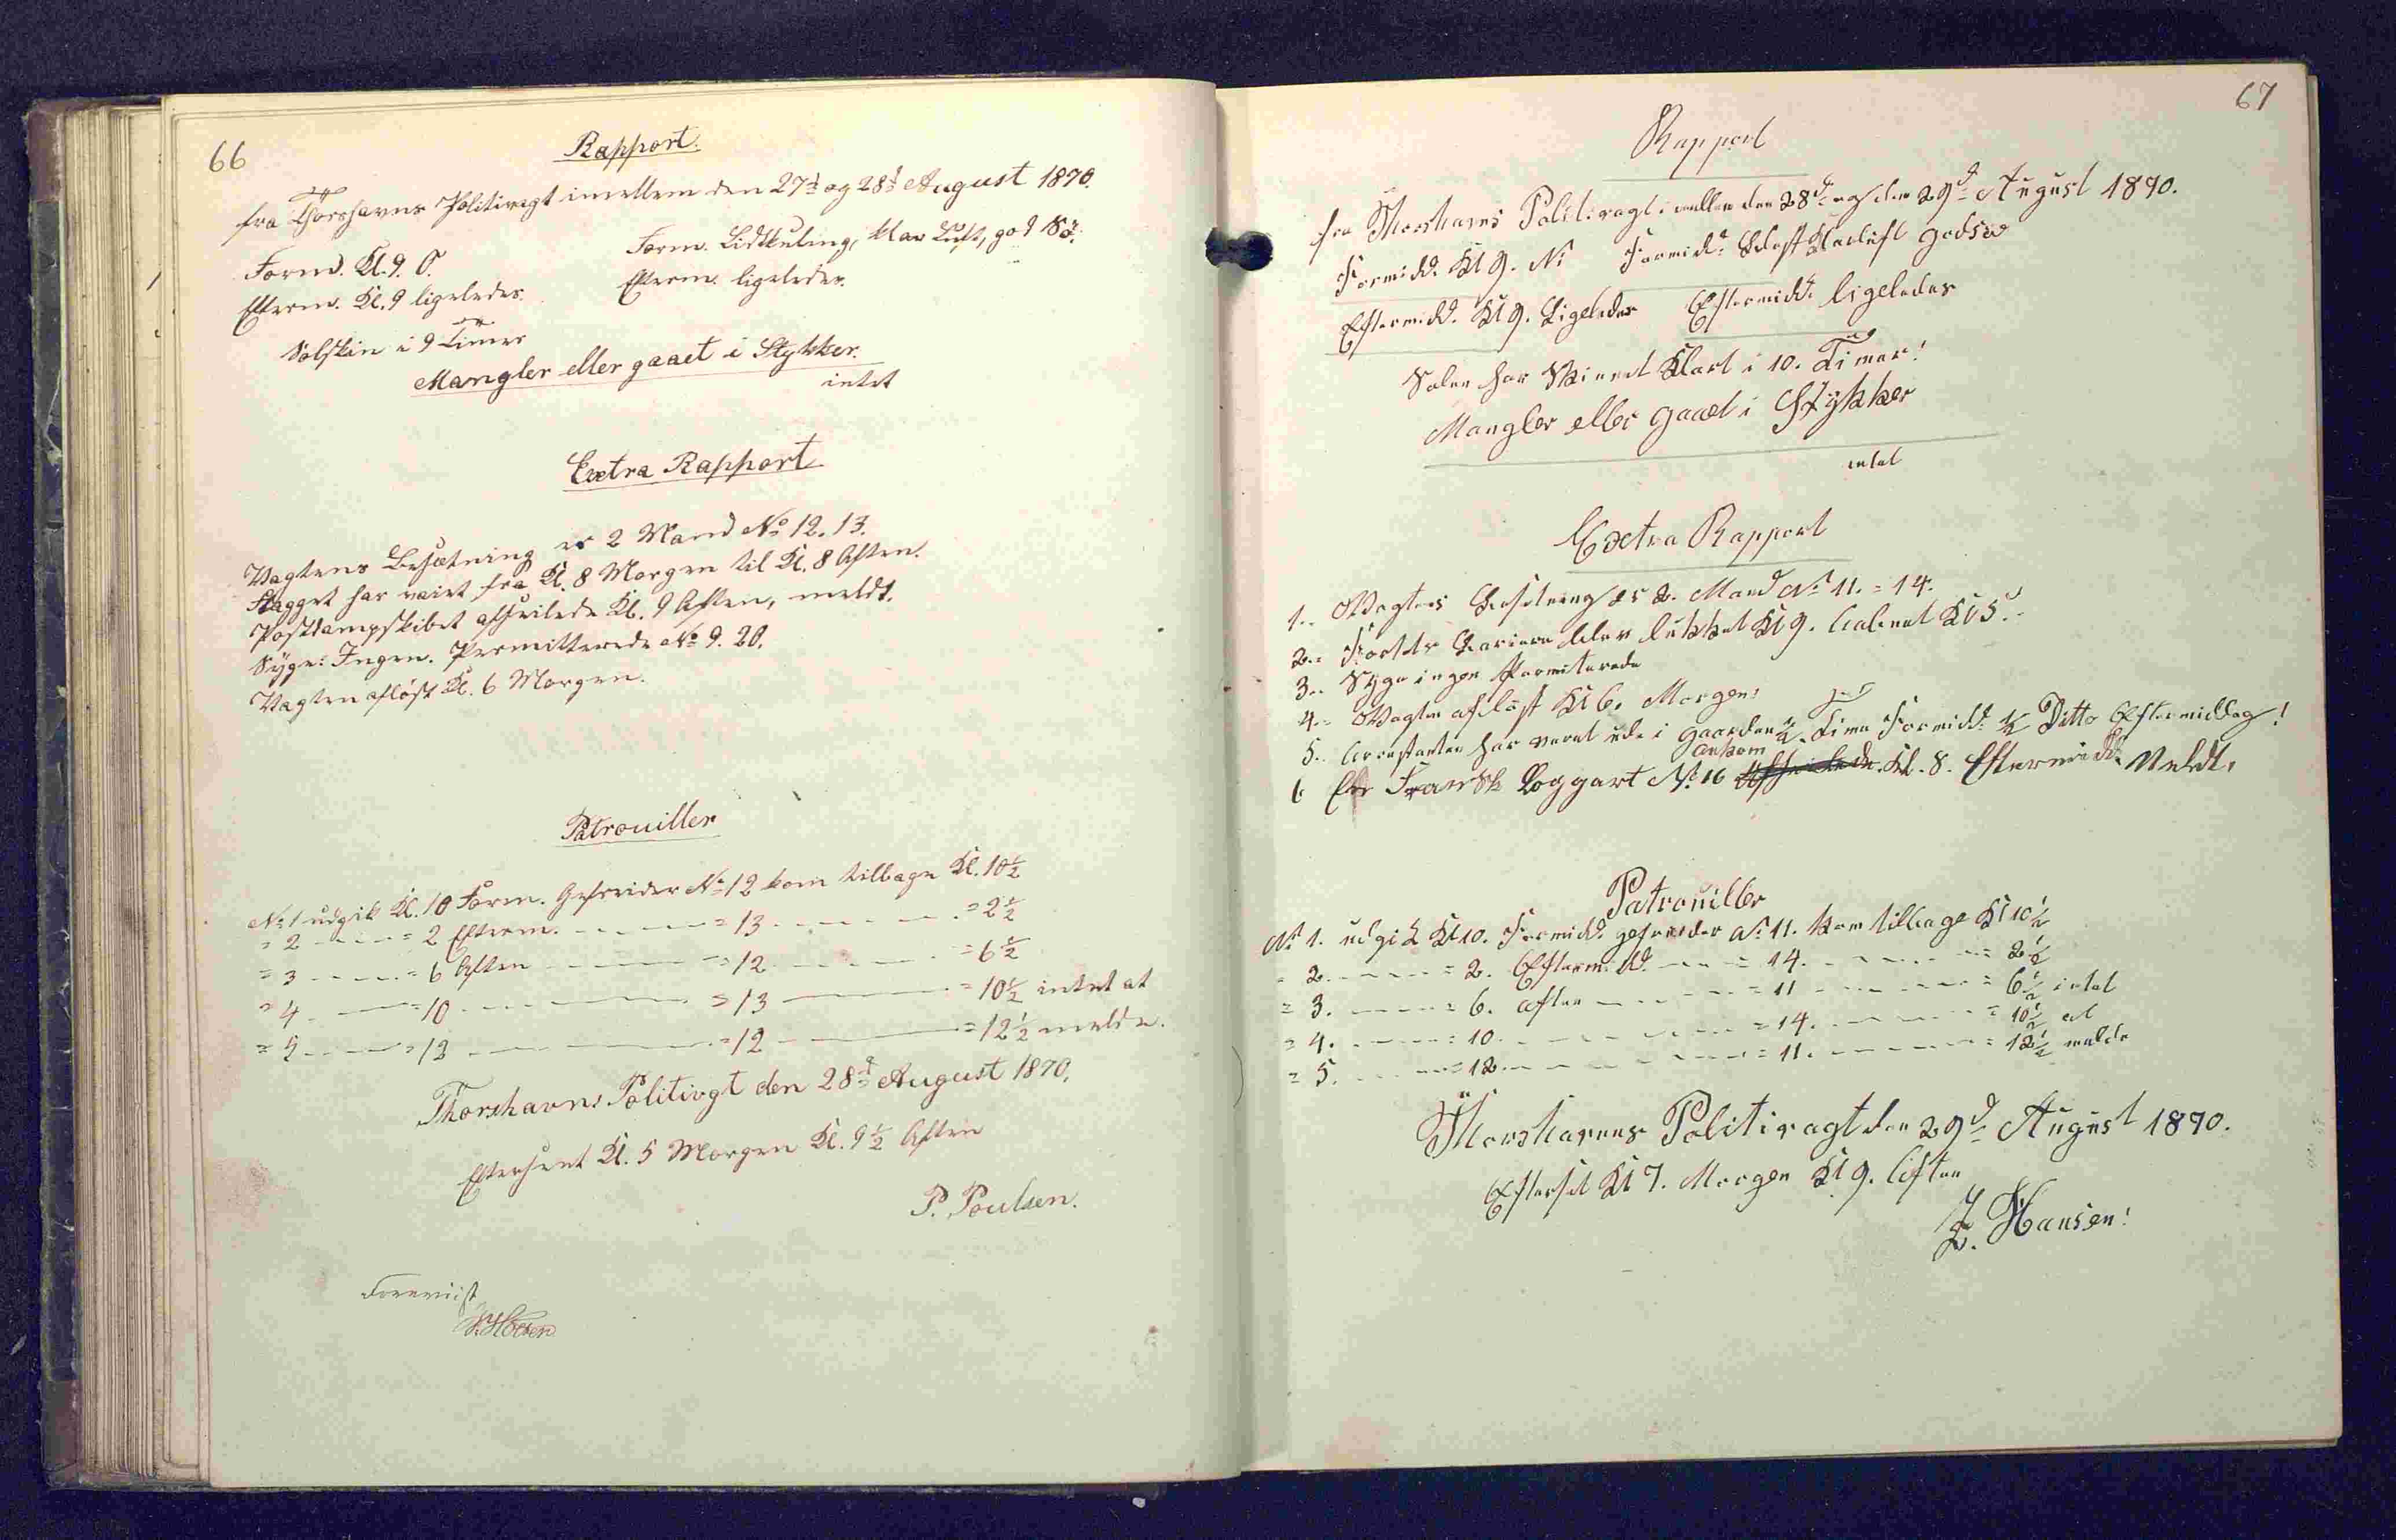 66
Rapport.
fra Thorshavns Politivagt imellem den 27d og 28d August 1870.
Formd. Kl. 9. O. Form. Lidkuling, klar Luft, god Sø.
Efterm. Kl. 9 ligeledes. Efterm. ligeledes.
Solskin i 9 Timer
Mangler eller gaaet i Stykker.
intet
Extra Rapport
Vagtens Besætning er 2 Mand No 12. 13.
Flagget har vaiet fra Kl. 8 Morgen til Kl. 8 Aften.
Postdampskibet afseilede Kl. 9 Aften, meldt.
Syge: Ingen. Permitterede No 9. 20.
Vagten afløst Kl. 6 Morgen.
Patrouiller
No 1 udgik Kl. 10 Form. Gefreider No 12 kom tilbage Kl. 10½
= 2 - - - = 2 Efterm. - - - = 13 - - - = 2½
= 3 - - - = 6 Aften - - - = 12 - - - = 6½
= 4 - - - = 10 - - - = 13 - - - = 10½ intet at
= 5 - - - = 12 - - - = 12 - - - = 12½ melde.
Thorshavns Politivgt den 28d August 1870.
Efterseet Kl. 5 Morgen Kl. 9½ Aften
P. Poulsen.
Foreviist
67
Rapport
fra Thorshavns Politivagt imellem den 28d og den 29d August 1870.
Formidd. Kl 9. N: Formidd: Klarluft godsø
Eftermidd. Kl 9. Ligeledes Eftermidd: ligeledes
Solen har Skinnet Klart i 10. Timer!
Mangler eller gaaet i Stykker
intet
Extra Rapport
1. Vagtens Besetning er 2. Mand No 11. = 14.
2. Fortets Bariere blev lukket Kl 9. Cabinet Kl 5.
3. Syge ingen Permiterede
4. Vagten afløst Kl 6. Morgen:
5. Arrestanten har veret ude i gaarden ½ Time Formidd: ½ Ditto Eftermiddag!
6 En Fransk Loggart No 16 ankom Kl. 8. Eftermidd. Meldt.
Patrouiller
No 1. udgik Kl 10. Formidd. gefreider No 11. kom tilbage Kl 10½
= 2. - - - = 2. Eftermidd. - - - = 14. - - - = 2½
= 3. - - - = 6. aften - - - = 11 - - - = 6½ intet
= 4. - - - = 10. - - - = 14. - - - = 10½ at
= 5. - - - = 12. - - - = 11. - - - = 12½ melde
Thorshavns Politivagt den 29d August 1870.
Efterset Kl 7. Morgen Kl 9. Aften
Z. Hansen!